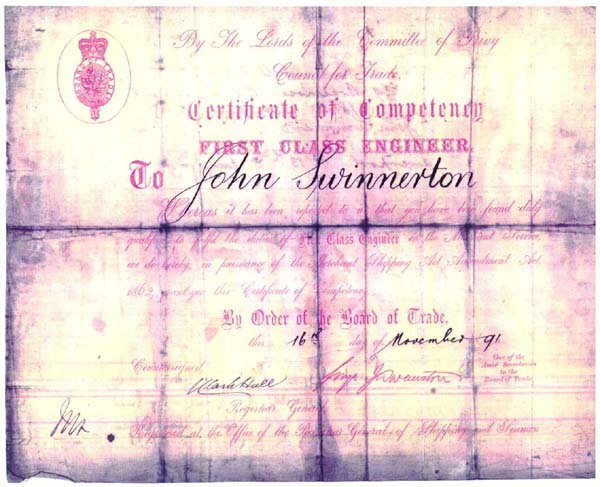 By The Lords of the Committee of Privy
Council for Trade.
Certificate of Competency
AS
FIRST CLASS ENGINEER.
To John Swinnerton
Whereas it has been reported to us that you have been found duly
qualified to fulfil the duties of First Class Engineer in the Merchant Service,
we do hereby, in pursuance of the Merchant Shipping Act Amendment Act,
1862, grant you this Certificate of Competency.
By Order of the Board of Trade,
this 16th day of November 91.
Countersigned,
One of the
Asst Secretaries
to the
Board of Trade
Registrar General.
Registered at the Office of the Registrar General of Shipping and Seamen
BOARD OF TRADE